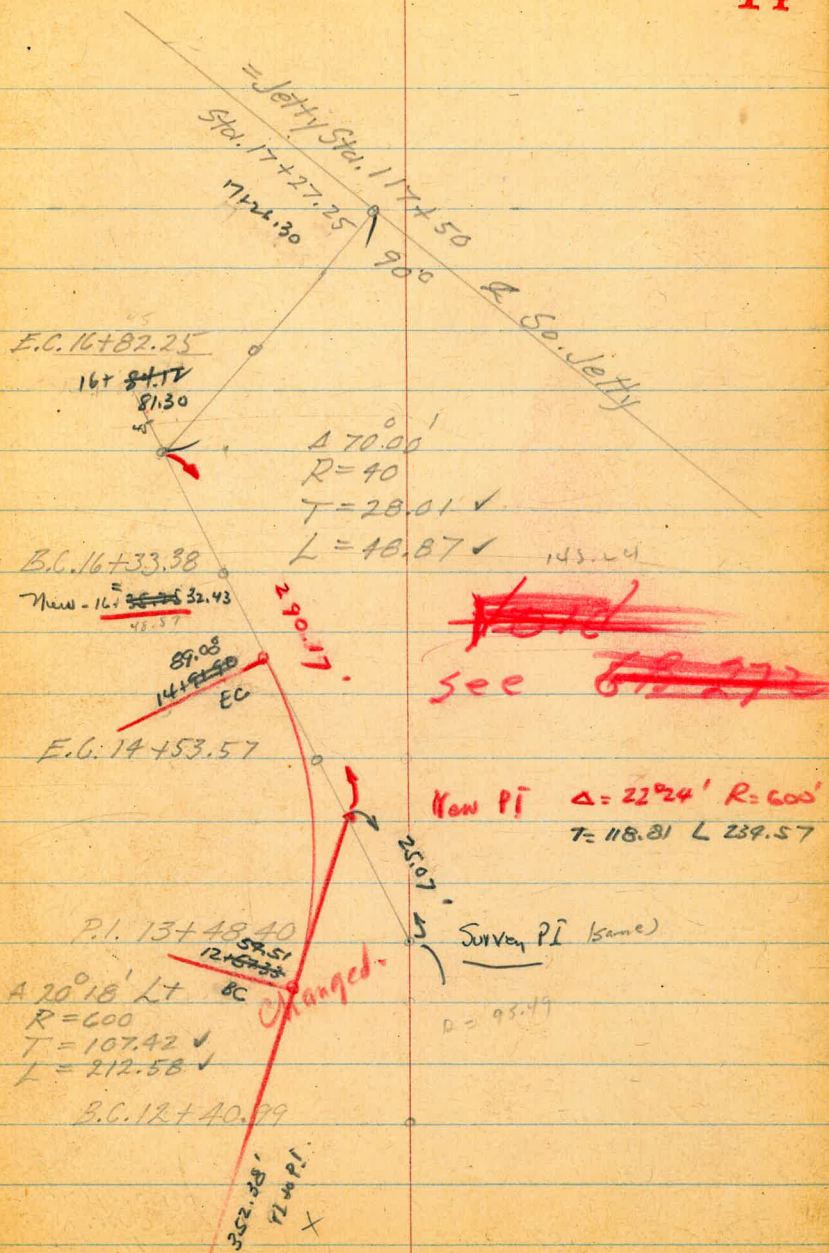 = Jetty Sta. 117+50
Sta. 17+27.25
17+26.30
90°
℄ So. Jetty
E.C. 16+82.25
16+ 84.12
81.30
45
Δ 70°00'
R = 40
T = 28.01 ✓
L = 48.87 ✓
B.C. 16+33.38
=
New - 16+ 32.43
48.87
290.17
Void
see
89.08
14+91.90
EC
E.C. 14+53.57
New PI Δ = 22°24' R = 600'
T = 118.81 L 234.57
25.07
Survey PI (same)
P.I. 13+48.40
54.51
12+57.33
BC
changed.
Δ 20°18' Lt
R = 600
T = 107.42 ✓
L = 212.58 ✓
B.C. 12+40.99
352.38'
PI to P.I.
X